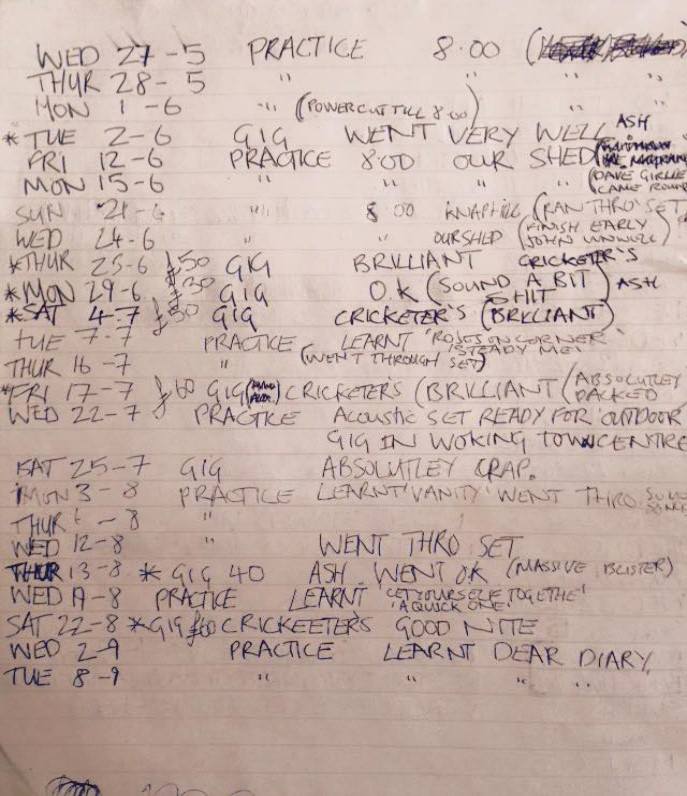 WED 27-5 PRACTICE 8.00 (
THUR 28-5 " " "
MON 1-6 " (POWERCUT TILL 8.00) " "
* TUE 2-6 GIG WENT VERY WELL ASH
FRI 12-6 PRACTICE 8.00 OUR SHED
MON 15-6 " " " (DAVE GIRLIE CAME ROUND
SUN 21-6 " 8.00 KNAPHILL (RAN THRO' SET
WED 24-6 " " OUR SHED (FINISH EARLY JOHN UNWELL)
*THUR 25-6 £50 GIG BRILLIANT CRICKETER'S
*MON 29-6 £30 GIG O.K (SOUND A BIT SHIT) ASH
*SAT 4-7 £50 GIG CRICKETER'S (BRILLIANT)
TUE 7-7 PRACTICE LEARNT 'ROSES ON CORNER' 'STEADY ME'
THUR 16-7 " (WENT THROUGH SET)
*FRI 17-7 £60 GIG CRICKETERS (BRILLIANT (ABSOLUTLEY PACKED
WED 22-7 PRACTICE ACOUSTIC SET READY FOR 'OUTDOOR'
GIG IN WOKING TOWNCENTRE
SAT 25-7 GIG ABSOLUTLEY CRAP.
MON 3-8 PRACTICE LEARNT 'VANITY' WENT THRO. SOME SONGS
THUR 6-8 "
WED 12-8 " WENT THRO SET
THUR 13-8 * GIG 40 ASH WENT OK (MASSIVE BLISTER)
WED 19-8 PRACTICE LEARNT 'GET YOURSELF TOGETHE' 'A QUICK ONE'
SAT 22-8 *GIG £60 CRICKEETER'S GOOD NITE
WED 2-9 PRACTICE LEARNT DEAR DIARY.
TUE 8-9 " " " "